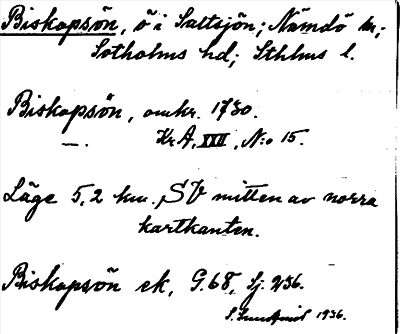 Biskopsön, ö i Saltsjön; Nämdö sn;
Sotholms hd; Sthlms l.
Biskopsön, omkr. 1730.
KrA, XXII, N:o 15.
Läge 5,2 km. SV mitten av norra
kartkanten.
Biskopsön ek, G.68, Sj. 236.
1936.